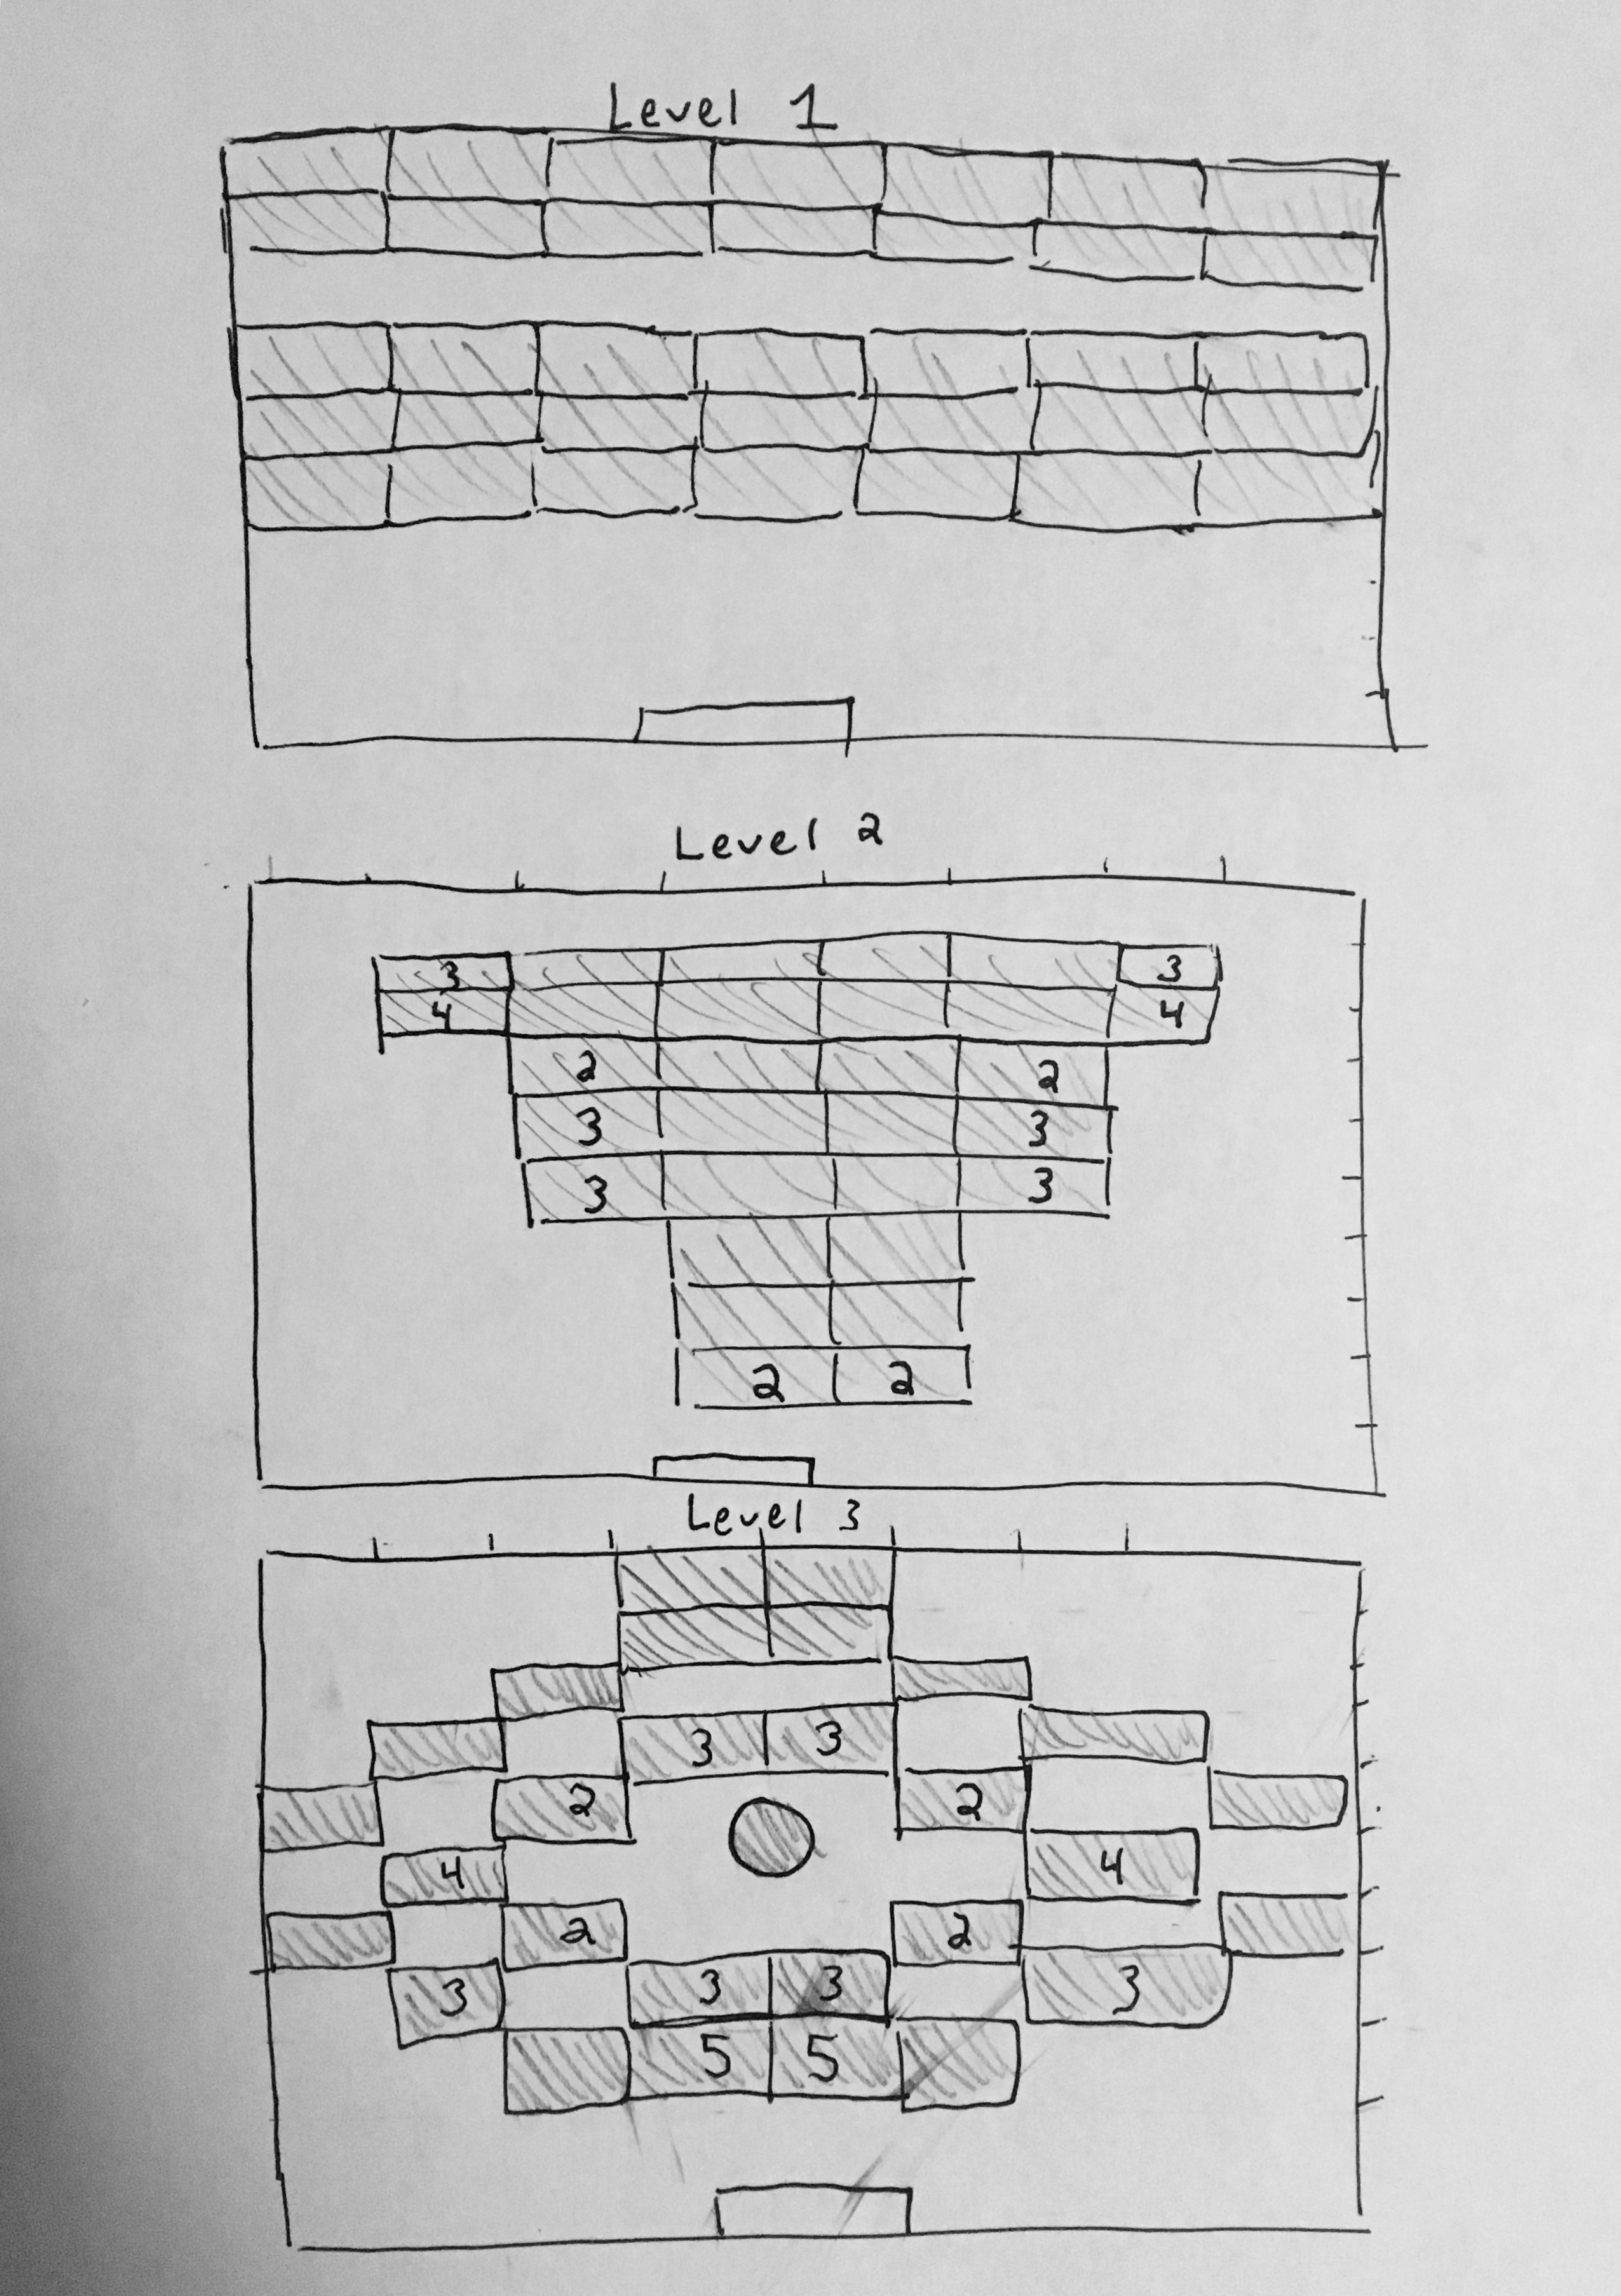 Level 1
Level 2
3 3
4 4
2 2
3 3
3 3
2 2
Level 3
3 3
2 2
4 4
2 2
3 3 3 3
5 5